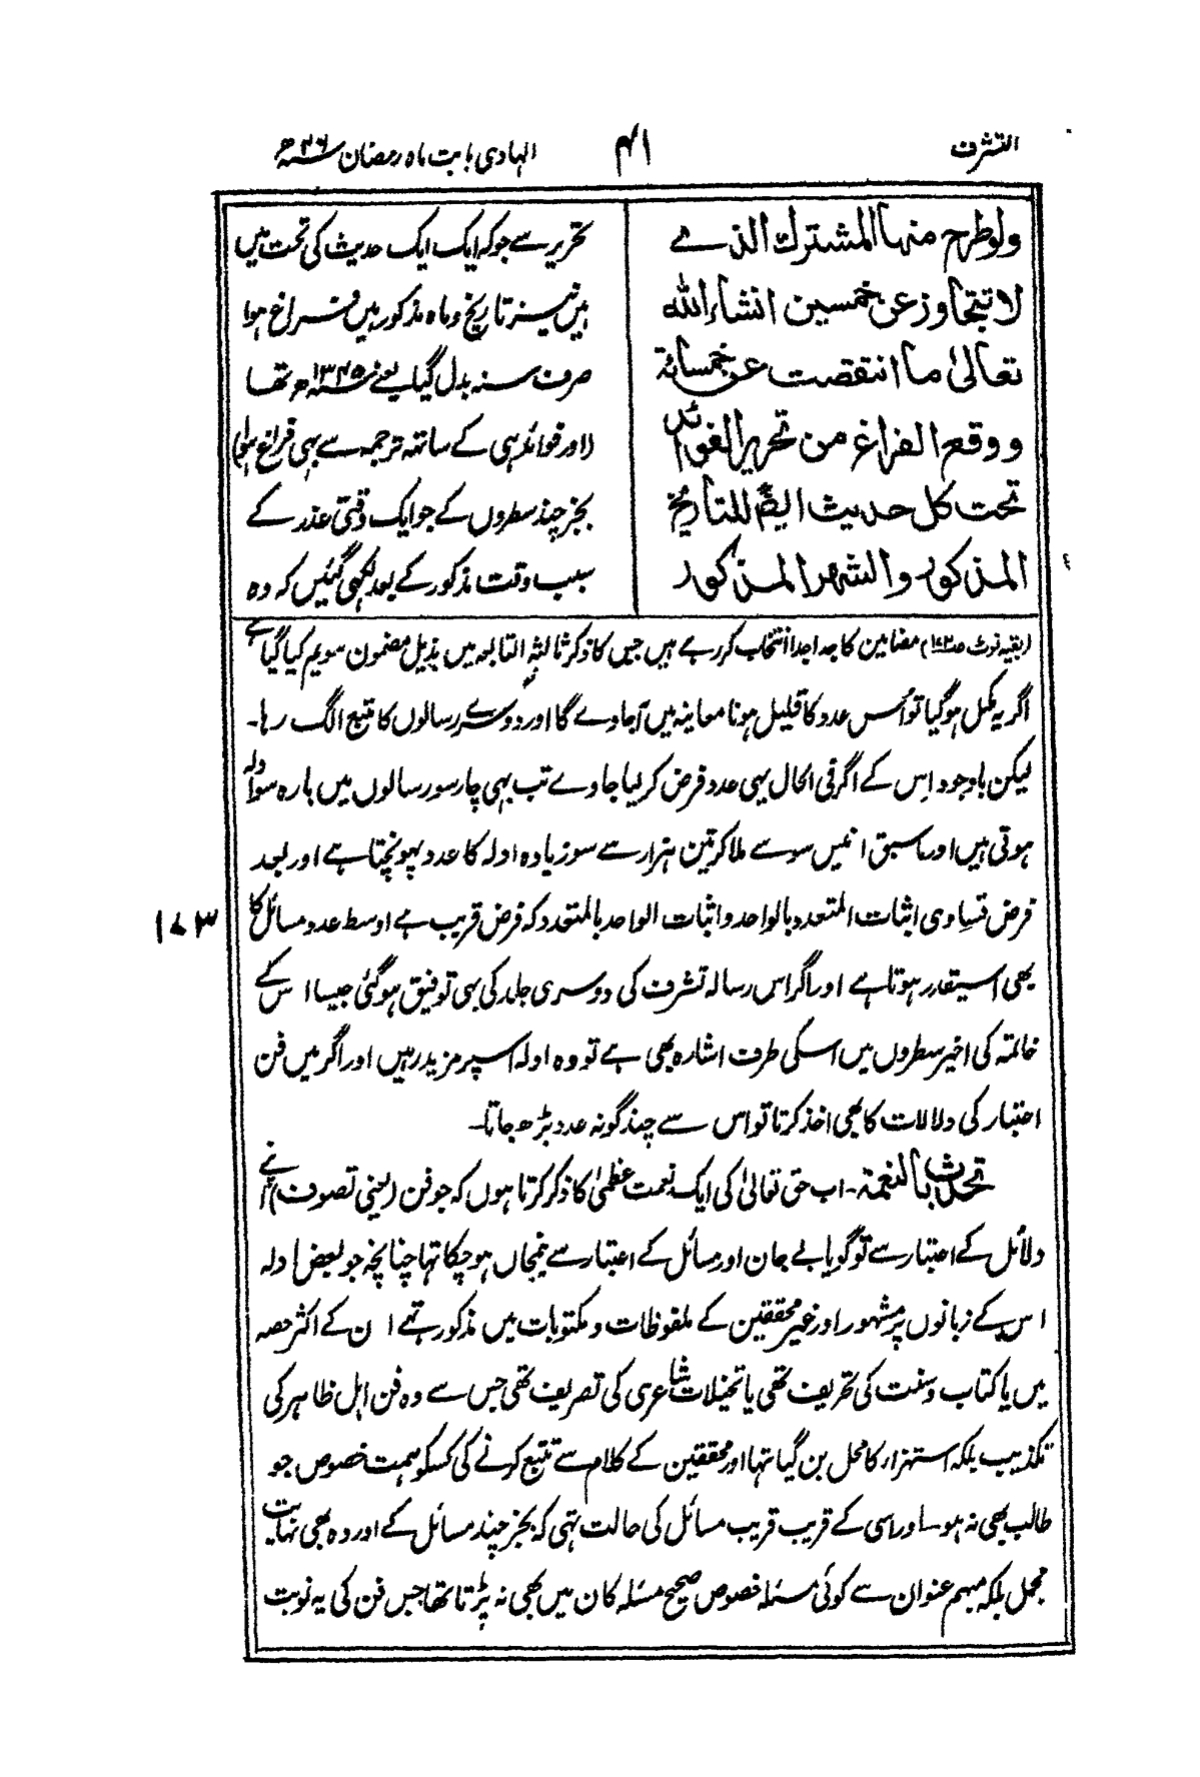 التشرف
۴۱
الہادی بابت ماہ رمضان ۴۶ھ
ولوطرح منہا المشترك الذے
لا تتجاوز عن خمسين انشاء الله
تعالىٰ ما انتقصت عن خمسائة
ووقع الفراغ من تحرير الفوائد
تحت كل حديث ايضًا للتاريخ
المذكور والشهر المذكور
تحریر سے جو کہ ایک ایک حدیث کی تحت میں
ہیں نیز تاریخ و ماہ مذکور میں فراغ ہوا
صرف سنہ بدل گیا یعنے ۱۳۴۵ھ تھا
(اور فوائد ہی کے ساتھ ترجمہ سے بہی فراغ ہوا)
بجز چند سطروں کے جو ایک وقتی عذر کے
سبب وقت مذکور کے بعد لکھی گئیں کہ وہ
(بقیہ نوٹ صـ۱۷۲) مضامین کا جدا جدا انتخاب کر رہے ہیں جس کا ذکر ثالثۃ التابعہ میں بذیل مضمون سویم کیا گیا ہے
اگر یہ مکمل ہو گیا تو اُس عدد کا قلیل ہونا معاینہ میں آجاوے گا اور دوسرے رسالوں کا تتبع الگ رہا۔
لیکن باوجود اِس کے اگر فی الحال یہی عدد فرض کر لیا جاوے تب بہی چار سو رسالوں میں بارہ سو ادلہ
ہوتی ہیں اور ماسبق انیس سو سے ملا کر تین ہزار سے سو زیادہ ادلہ کا عدد پہونچتا ہے اور بعد
فرض تساوی اثبات المتعدد بالواحد و اثبات الواحد بالمتعدد کہ فرض قریب ہے اوسط عدد مسائل کا
۱۷۳
بھی اسیقدر ہوتا ہے اور اگر اس رسالہ تشرف کی دوسری جلد کی بہی توفیق ہو گئی جیسا اس کے
خاتمہ کی اخیر سطروں میں اسکی طرف اشارہ بھی ہے تو وہ ادلہ اسپر مزید رہیں اور اگر میں فن
اعتبار کی دلالات کا بھی اخذ کرتا تو اس سے چند گونہ عدد بڑھ جاتا۔
تحدث بالنعمۃ۔ اب حق تعالیٰ کی ایک نعمت عظمیٰ کا ذکر کرتا ہوں کہ جو فن (یعنی تصوف) اپنے
دلائل کے اعتبار سے تو گویا بے جان اور مسائل کے اعتبار سے نیمجاں ہو چکا تہا چنانچہ جو بعض ادلہ
اس کے زبانوں پر مشہور اور غیر محققین کے ملفوظات و مکتوبات میں مذکور تہے ان کے اکثر حصہ
میں یا کتاب و سنت کی تحریف تھی یا تخیلات شاعری کی تصریف تھی جس سے وہ فن اہل ظاہر کی
تکذیب بلکہ استہزار کا محل بن گیا تہا اور محققین کے کلام سے تتبع کرنے کی کسکو ہمت خصوص جو
طالب بھی نہ ہو۔ اور اسی کے قریب قریب مسائل کی حالت تہی کہ بجز چند مسائل کے اور وہ بھی نہایت
مجمل بلکہ مبہم عنوان سے کوئی مسئلہ خصوص صحیح مسئلہ کان میں بھی نہ پڑتا تھا جس فن کی یہ نوبت